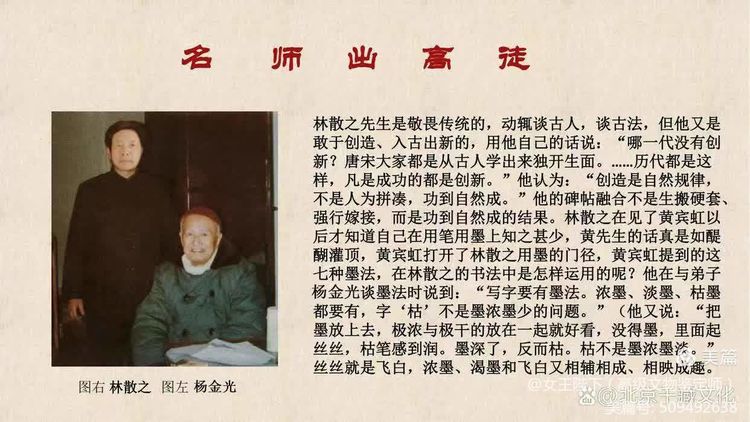 名师出高徒
林散之先生是敬畏传统的，动辄谈古人，谈古法，但他又是
敢于创造、入古出新的，用他自己的话说：“哪一代没有创
新？唐宋大家都是从古人学出来独开生面。……历代都是这
样，凡是成功的都是创新。”他认为：“创造是自然规律，
不是人为拼凑，功到自然成。”他的碑帖融合不是生搬硬套、
强行嫁接，而是功到自然成的结果。林散之在见了黄宾虹以
后才知道自己在用笔用墨上知之甚少，黄先生的话真是如醍
醐灌顶，黄宾虹打开了林散之用墨的门径，黄宾虹提到的这
七种墨法，在林散之的书法中是怎样运用的呢？他在与弟子
杨金光谈墨法时说到：“写字要有墨法。浓墨、淡墨、枯墨
都要有，字‘枯’不是墨浓墨少的问题。”（他又说：“把
墨放上去，极浓与极干的放在一起就好看，没得墨，里面起
丝丝，枯笔感到润。墨深了，反而枯。枯不是墨浓墨淡。”
丝丝就是飞白，浓墨、渴墨和飞白又相辅相成、相映成趣。
图右 林散之 图左 杨金光
美篇
@女王陛下（高级文物鉴定师）
@北京千藏文化
美篇号: 509492638